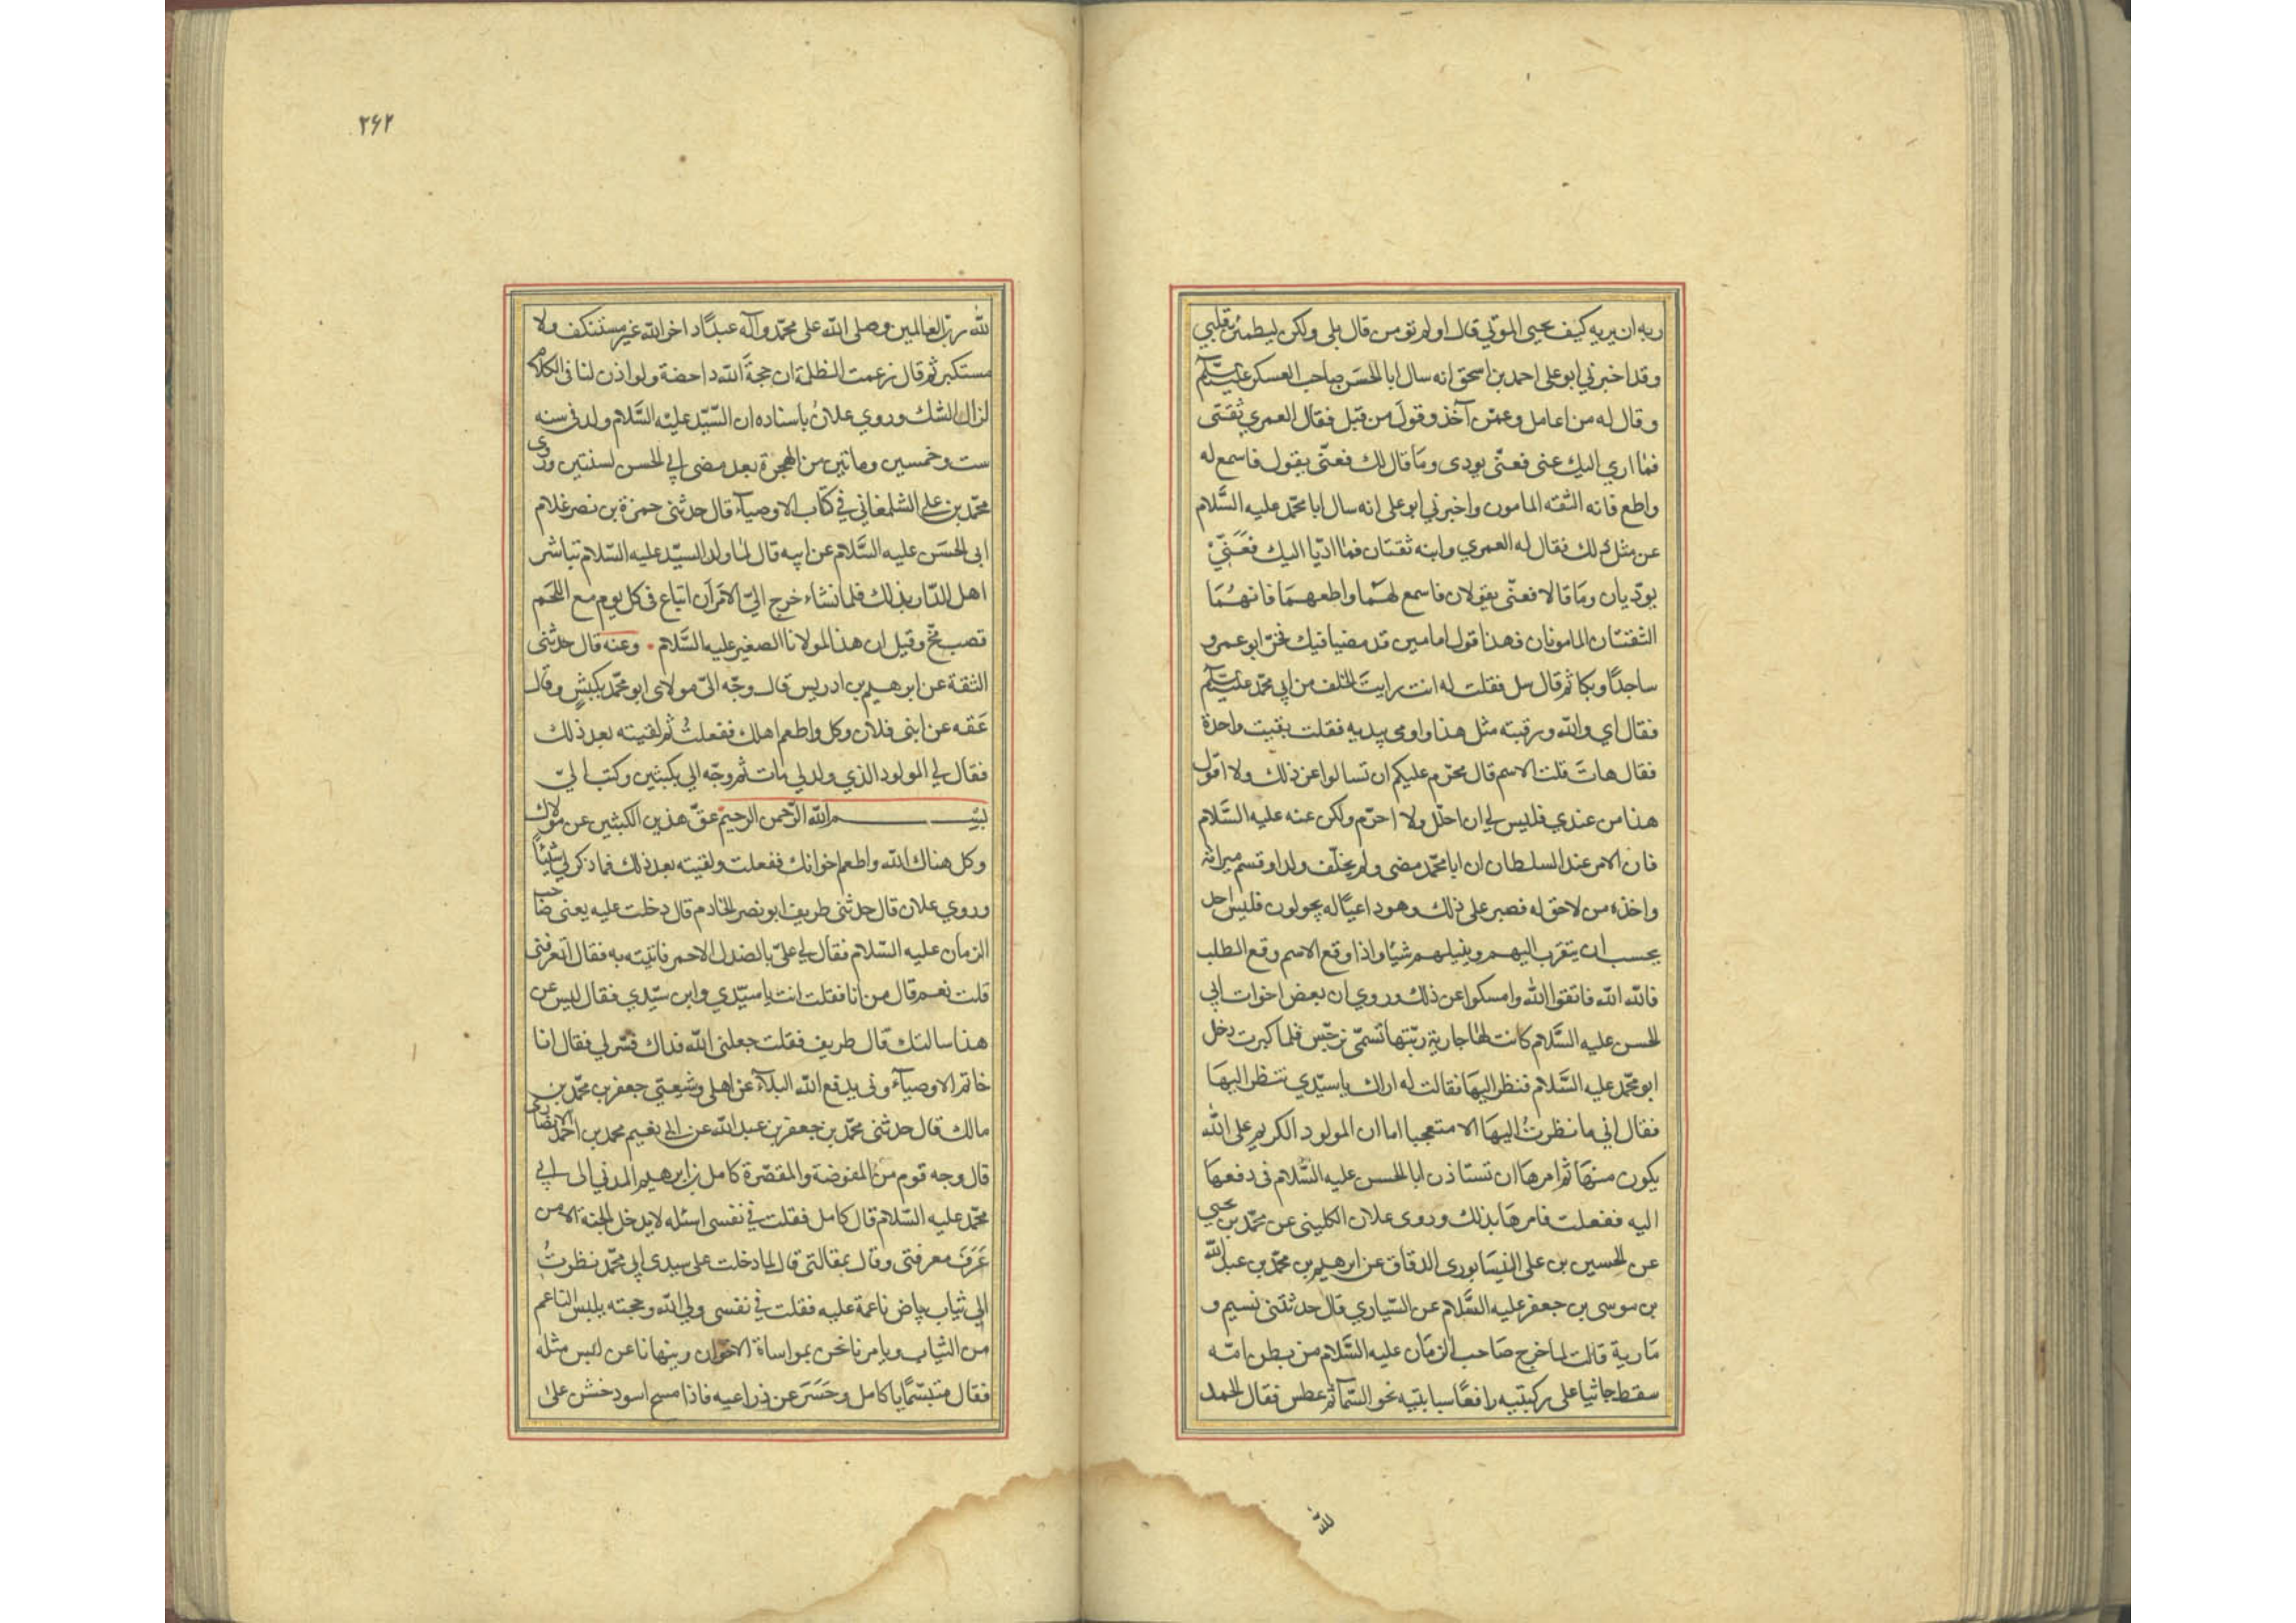 ربه ان يريه كيف يحيى الموتي قال اولم تومن قال بلي ولكن ليطمئن قلبي
وقد اخبرني ابو على احمد بن اسحق انه سال ابا الحسن صاحب العسكر عليه السلام
وقال له من اعامل وعمن آخذ وقول من قبل فقال العمري ثقتى
فما ادي اليك عنى فعنّى يودى وما قال لك فعنّى يقول فاسمع له
واطع فانه الثقه المامون واخبرني ابو على انه سال ابا محمّد عليه السَّلام
عن مثل ذلك فقال له العمري وابنه ثقتان فما ادّيا اليك فعَنّيْ
يودّيان وما قالا فعنّى يقولان فاسمع لهما واطعهما فانهُمَا
الثقتان المامونان فهذا قول امامين قد مضيا فيك فخرّ ابو عمرو
ساجدًا وبكا ثم قال سل فقلت له انت رايت الخلف من ابي محمّد عليه السلام
فقال اي والله ورقبته مثل هذا واومى بيديه فقلت بقيت واحدة
فقال هات قلت الاسم قال محرّم عليكم ان تسالوا عن ذلك ولا اقول
هذا من عندي فليس لي ان احلّل ولا احرّم ولكن عنه عليه السَّلام
فان الامر عند السلطان ان ابا محمّد مضى ولم يخلّف ولدا وقسم ميراثه
واخذه من لا حق له فصبر على ذلك وهو ذا عياله يجولون فليس احد
يجسب ان يتقرب اليهم وينيلهم شيًا واذا وقع الاسم وقع الطلب
فالله الله فاتقوا الله وامسكوا عن ذلك وروي ان بعض اخوات ابي
الحسن عليه السَّلام كانت لها جارية ربّتها تسمّى نرجس فلما كبرت دخل
ابو محمّد عليه السَّلام فنظر اليها فقالت له اراك يا سيّدي تنظر اليها
فقال اني ما نظرتُ اليها الا متعجبا اما ان المولود الكريم على الله
يكون منها ثم امرها ان تستاذن ابا الحسن عليه السَّلام فى دفعها
اليه ففعلت فامرها بذلك وروى علان الكلينى عن محمّد بن يحيي
عن الحسين بن على النيسابورى الدقاق عن ابرهيم بن محمّد بن عبد الله
بن موسى بن جعفر عليه السَّلام عن السّياري قال حدثتنى نسيم و
مارية قالت لما خرج صاحب الزمان عليه السَّلام من بطن امّه
سقط جاثيا على ركبتيه رافعًا سبابتيه نحو السّمآ ثم عطس فقال الحمد
لله
٢۶٢
لله ربّ العالمين وصلى الله على محمّد وآله عبدًا داخر الله غير مستنكف ولا
مستكبر ثم قال زعمت الظلمة ان حجةَ الله داحضة ولو اذن لنا فى الكلام
لزال الشك وروي علانُ باسناده ان السّيّد عليه السَّلام ولد فى سنه
ست وخمسين وماتين من الهجرة بعد مضى ابي الحسن لسنتين وروى
محمّد بن على الشلمغاني في كتاب الاوصيآء قال حدثنى حمزة بن نصر غلام
ابى الحسَن عليه السَّلام عن ابيه قال لما ولد السيّد عليه السّلام تباشر
اهل الدّار بذلك فلما نشاء خرج اليّ الامر ان ابتاع فى كل يوم مع اللحم
قصب مخّ وقيل ان هذا لمولانا الصغير عليه السَّلام . وعنه قال حدثنى
الثقة عن ابرهيم بن ادريس قال وجّه اليّ مولاى ابو محمّد بكبشٍ وقال
عَقه عن ابنى فلان وكل واطعم اهلك ففعلتُ ثم لقيته بعد ذلك
فقال لي المولود الذي ولد لي مات ثم وجّه الي بكبشين وكتب اليّ
بسم الله الرّحمن الرحيم عقّ هذين الكبشين عن مولاك
وكل هناك الله واطعم اخوانك ففعلت ولقيته بعد ذلك فما ذكر لي شيئًا
وروي علان قال حدثنى طريف ابو نصر الخادم قال دخلت عليه يعنى صاحب
الزمان عليه السّلام فقال لي علىّ بالصندل الاحمر فاتيته به فقال اتعرفنى
قلت نعم قال من انا فقلت انت يا سيّدي وابن سيّدي فقال ليس عن
هذا سالتك قال طريف فقلت جعلنى الله فداك فسّر لي فقال انا
خاتم الاوصيآء وبى يدفع الله البلآء عن اهلي وشيعتي جعفر بن محمّد بن
مالك قال حدثنى محمّد بن جعفر بن عبد الله عن ابى نعيم محمد بن احمد الانصارى
قال وجه قوم من المفوضة والمقصّرة كامل بن ابرهيم المدني الى ابي
محمّد عليه السّلام قال كامل فقلت في نفسى اسئله لا يدخل الجنة الا من
عَرَفَ معرفتى وقال بمقالتى قال لما دخلت على سيدى ابي محمّد نظرتُ
الى ثياب بياض ناعمة عليه فقلت في نفسى ولي الله وحجته يلبس الناعم
من الثياب ويامرنا نحن بمواساة الاخوان وينهانا عن لبس مثله
فقال متبسّمًا يا كامل وحَسَرَ عن ذراعيه فاذا مسح اسود خشن على